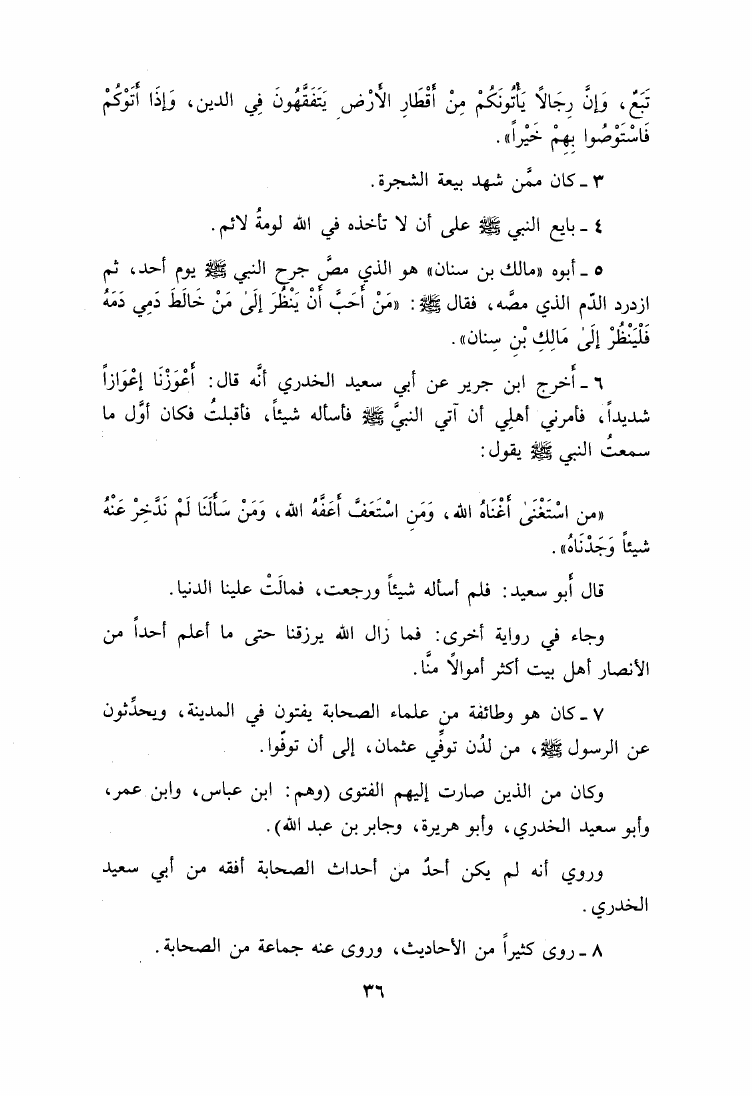 تَبَعٌ، وَإِنَّ رِجَالاً يَأْتُونَكُمْ مِنْ أَقْطَارِ الأَرْضِ يَتَفَقَّهُونَ فِي الدين، وَإِذَا أَتَوْكُمْ
فَاسْتَوْصُوا بِهِمْ خَيْراً».
٣ ـ كان ممَّن شهد بيعة الشجرة.
٤ ـ بايع النبي ﷺ على أن لا تأخذه في الله لومةُ لائم.
٥ ـ أبوه «مالك بن سنان» هو الذي مصَّ جرح النبي ﷺ يوم أحد، ثم
ازدرد الدّم الذي مصَّه، فقال ﷺ: «مَنْ أَحَبَّ أَنْ يَنْظُرَ إِلَىٰ مَنْ خَالَطَ دَمِي دَمَهُ
فَلْيَنْظُرْ إِلَىٰ مَالِكِ بْنِ سِنان».
٦ ـ أَخرج ابن جرير عن أبي سعيد الخدري أنَّه قال: أَعْوَزْنَا إِعْوَازاً
شديداً، فأمرني أهلِي أن آتي النبيَّ ﷺ فأسأله شيئاً، فأقبلتُ فكان أوَّل ما
سمعتُ النبي ﷺ يقول:
«من اسْتَغْنَىٰ أَغْنَاهُ الله، وَمَنِ اسْتَعَفَّ أَعَفَّهُ الله، وَمَنْ سَأَلَنَا لَمْ نَدَّخِرْ عَنْهُ
شيئاً وَجَدْنَاهُ».
قال أَبو سعيد: فلم أسأله شيئاً ورجعت، فمالَتْ علينا الدنيا.
وجاء في رواية أخرى: فما زال الله يرزقنا حتى ما أعلم أحداً من
الأنصار أهل بيت أكثر أموالاً منَّا.
٧ ـ كان هو وطائفة من علماء الصحابة يفتون في المدينة، ويحدِّثون
عن الرسول ﷺ، من لدُن توفِّي عثمان، إلى أن توفّوا.
وكان من الذين صارت إليهم الفتوى (وهم: ابن عباس، وابن عمر،
وأبو سعيد الخدري، وأبو هريرة، وجابر بن عبد الله).
وروي أنه لم يكن أحدٌ من أحداث الصحابة أفقه من أبي سعيد
الخدري.
٨ ـ روى كثيراً من الأحاديث، وروى عنه جماعة من الصحابة.
٣٦